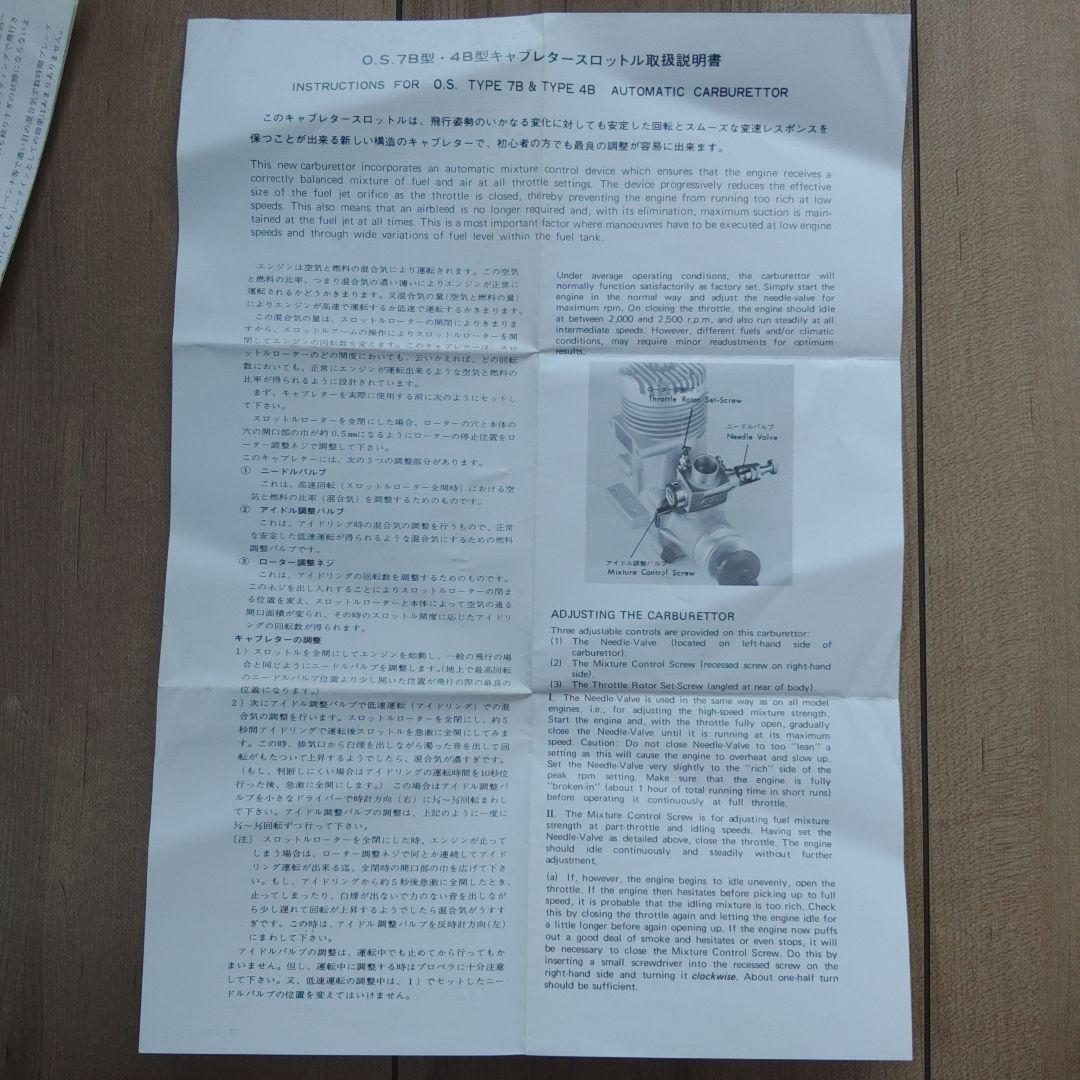 O.S.7B型・4B型キャブレタースロットル取扱説明書
INSTRUCTIONS FOR O.S. TYPE 7B & TYPE 4B AUTOMATIC CARBURETTOR
このキャブレタースロットルは、飛行姿勢のいかなる変化に対しても安定した回転とスムーズな変速レスポンスを
保つことが出来る新しい構造のキャブレターで、初心者の方でも最良の調整が容易に出来ます。
This new carburettor incorporates an automatic mixture control device which ensures that the engine receives a
correctly balanced mixture of fuel and air at all throttle settings. The device progressively reduces the effective
size of the fuel jet orifice as the throttle is closed, thereby preventing the engine from running too rich at low
speeds. This also means that an airbleed is no longer required and, with its elimination, maximum suction is main-
tained at the fuel jet at all times. This is a most important factor where manoeuvres have to be executed at low engine
speeds and through wide variations of fuel level within the fuel tank.
エンジンは空気と燃料の混合気により運転されます。この空気
と燃料の比率、つまり混合気の濃い薄いによりエンジンが正常に
運転されるかどうかきまります。又混合気の量(空気と燃料の量)
によりエンジンが高速で運転するか低速で運転するかきまります。
この混合気の量は、スロットルローターの開閉によりきまりま
すから、スロットルアームの操作によりスロットルローターを開
閉してエンジンの回転数を変えます。このキャブレターは、スロ
ットルローターのどの開度においても、云いかえれば、どの回転
数においても、正常にエンジンが運転出来るような空気と燃料の
比率が得られるように設計されています。
まず、キャブレターを実際に使用する前に次のようにセットし
て下さい。
スロットルローターを全閉にした場合、ローターの穴と本体の
穴の開口部の巾が約0.5mmになるようにローターの停止位置をロ
ーター調整ネジで調整して下さい。
このキャブレターには、次の3つの調整部分があります。
① ニードルバルブ
これは、高速回転(スロットルローター全開時)における空
気と燃料の比率(混合気)を調整するためのものです。
② アイドル調整バルブ
これは、アイドリング時の混合気の調整を行うもので、正常
な安定した低速運転が得られるような混合気にするための燃料
調整バルブです。
③ ローター調整ネジ
これは、アイドリングの回転数を調整するためのものです。
このネジを出し入れすることによりスロットルローターの閉ま
る位置を変え、スロットルローターと本体によって空気の通る
開口面積が変られ、その時のスロットル開度に応じたアイドリ
ングの回転数が得られます。
キャブレターの調整
1)スロットルを全開にしてエンジンを始動し、一般の飛行の場
合と同じようにニードルバルブを調整します。(地上で最高回転
のニードルバルブ位置より少し開いた位置が飛行の際の最良の
位置になります。)
2)次にアイドル調整バルブで低速運転(アイドリング)での混
合気の調整を行います。スロットルローターを全閉にし、約5
秒間アイドリングで運転後スロットルを急激に全開にしてみま
す。この時、排気口から白煙を出しながら濁った音を出して回
転がもたついて上昇するようでしたら、混合気が濃すぎです。
(もし、判断しにくい場合はアイドリングの運転時間を10秒位
行った後、急激に全開にします。) この場合はアイドル調整バ
ルブを小さなドライバーで時計方向(右)に¼~½回転まわし
て下さい。アイドル調整バルブの調整は、上記のように一度に
¼~½回転ずつ行って下さい。
〔注〕 スロットルローターを全閉にした時、エンジンが止って
しまう場合は、ローター調整ネジで何とか連続してアイド
リング運転が出来る迄、全閉時の開口部の巾を広げて下さ
い。もし、アイドリングから約5秒後急激に全開したとき、
止ってしまったり、白煙が出ないで力のない音を出しなが
ら少し遅れて回転が上昇するようでしたら混合気がうすす
ぎです。この時は、アイドル調整バルブを反時計方向(左)
にまわして下さい。
アイドルバルブの調整は、運転中でも止めてから行ってもか
まいません。但し、運転中に調整する時はプロペラに十分注意
して下さい。又、低速運転の調整中は、1)でセットしたニー
ドルバルブの位置を変えてはいけません。
Under average operating conditions, the carburettor will
normally function satisfactorily as factory set. Simply start the
engine in the normal way and adjust the needle-valve for
maximum rpm. On closing the throttle, the engine should idle
at between 2,000 and 2,500 r.p.m. and also run steadily at all
intermediate speeds. However, different fuels and/or climatic
conditions, may require minor readjustments for optimum
results.
Throttle Rotor Set-Screw
ニードルバルブ
Needle Valve
アイドル調整バルブ
Mixture Control Screw
ADJUSTING THE CARBURETTOR
Three adjustable controls are provided on this carburettor:
(1) The Needle-Valve (located on left-hand side of
carburettor).
(2) The Mixture Control Screw (recessed screw on right-hand
side).
(3) The Throttle Rotor Set-Screw (angled at rear of body).
I. The Needle-Valve is used in the same way as on all model
engines, i.e., for adjusting the high-speed mixture strength.
Start the engine and, with the throttle fully open, gradually
close the Needle-Valve until it is running at its maximum
speed. Caution: Do not close Needle-Valve to too "lean" a
setting as this will cause the engine to overheat and slow up.
Set the Needle-Valve very slightly to the "rich" side of the
peak rpm setting. Make sure that the engine is fully
"broken-in" (about 1 hour of total running time in short runs)
before operating it continuously at full throttle.
II. The Mixture Control Screw is for adjusting fuel mixture
strength at part-throttle and idling speeds. Having set the
Needle-Valve as detailed above, close the throttle. The engine
should idle continuously and steadily without further
adjustment.
(a) If, however, the engine begins to idle unevenly, open the
throttle. If the engine then hesitates before picking up to full
speed, it is probable that the idling mixture is too rich. Check
this by closing the throttle again and letting the engine idle for
a little longer before again opening up. If the engine now puffs
out a good deal of smoke and hesitates or even stops, it will
be necessary to close the Mixture Control Screw. Do this by
inserting a small screwdriver into the recessed screw on the
right-hand side and turning it clockwise. About one-half turn
should be sufficient.